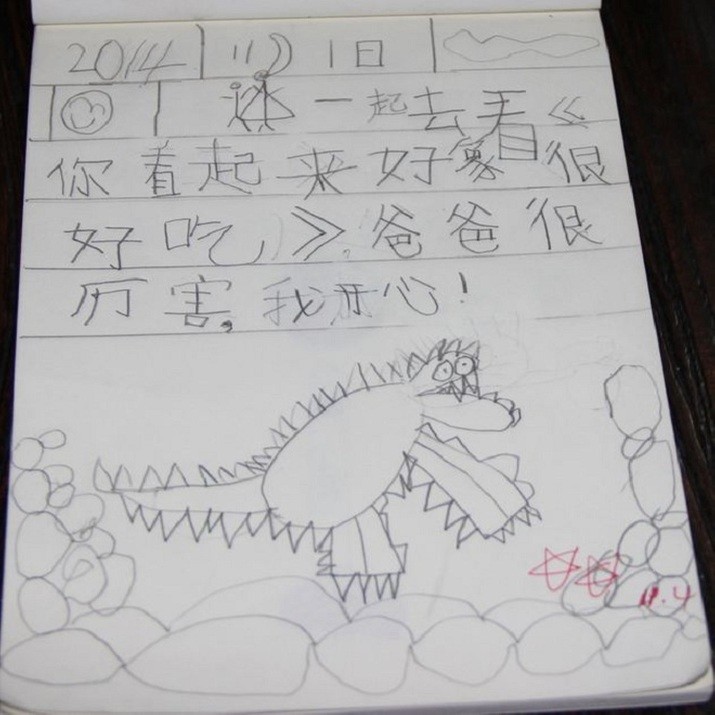 2014 11 1日
一起去看《
你看起来好象很
好吃》,爸爸很
厉害,我开心!
11.4